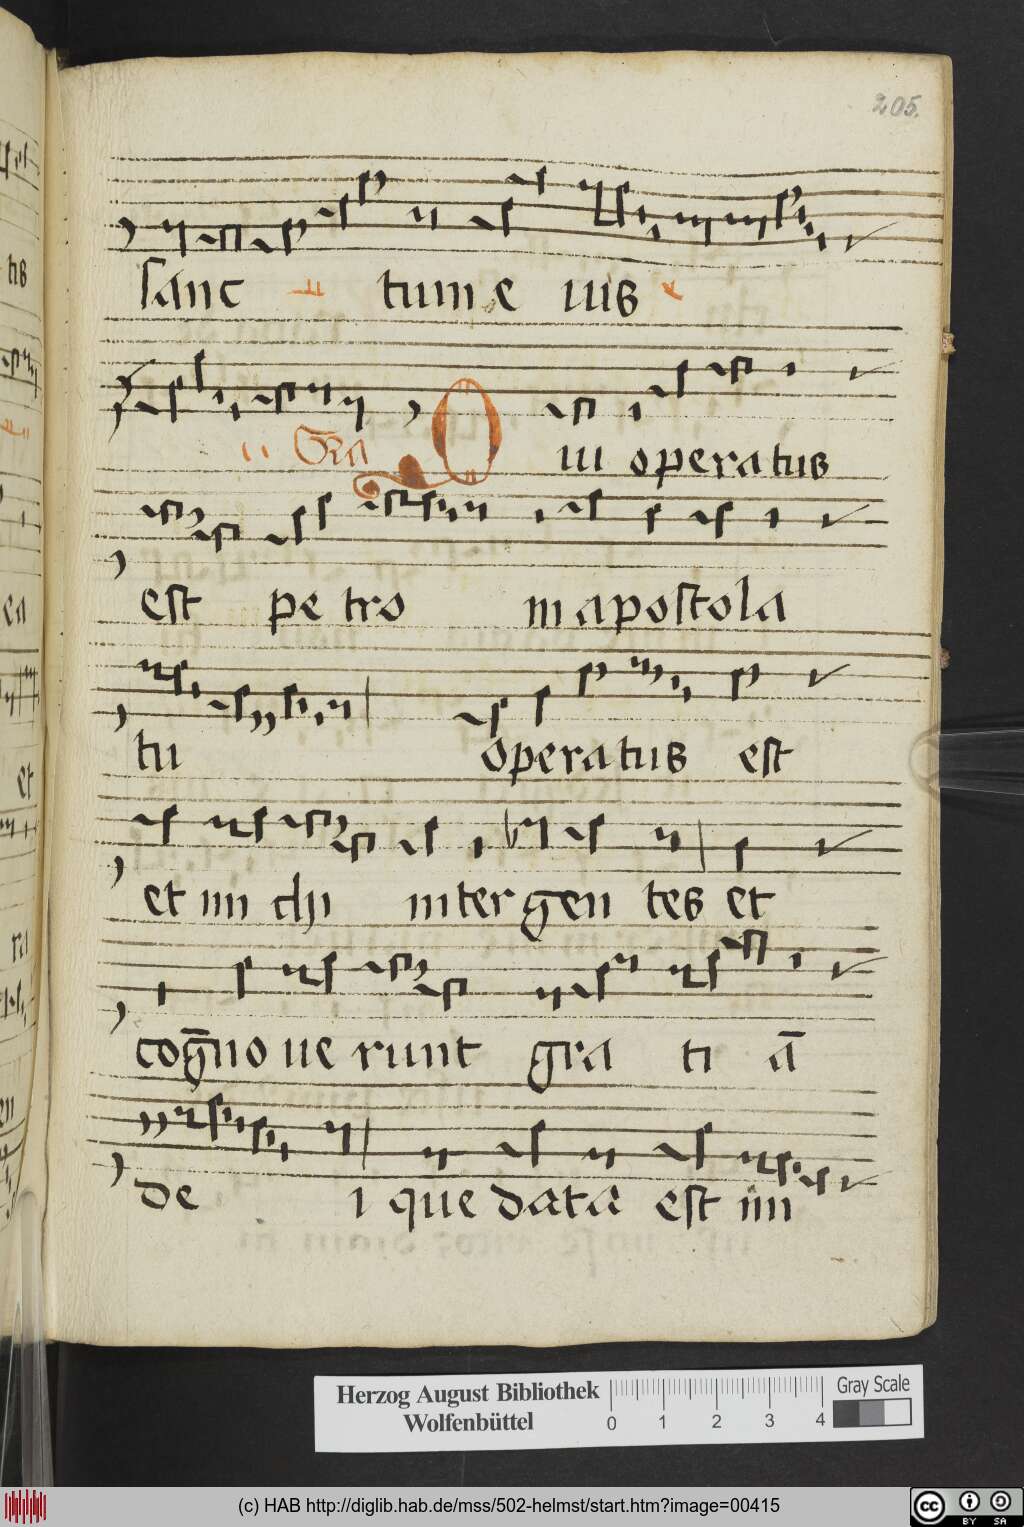 205.
sanc tum e ius
Gra Q ui operatus
est pe tro in apostola
tu operatus est
et im chi inter gen tes et
cog̅no ue runt gra ti ā
de i que data est im
Herzog August Bibliothek
Wolfenbüttel
0 1 2 3 4
Gray Scale
(c) HAB http://diglib.hab.de/mss/502-helmst/start.htm?image=00415
cc BY SA